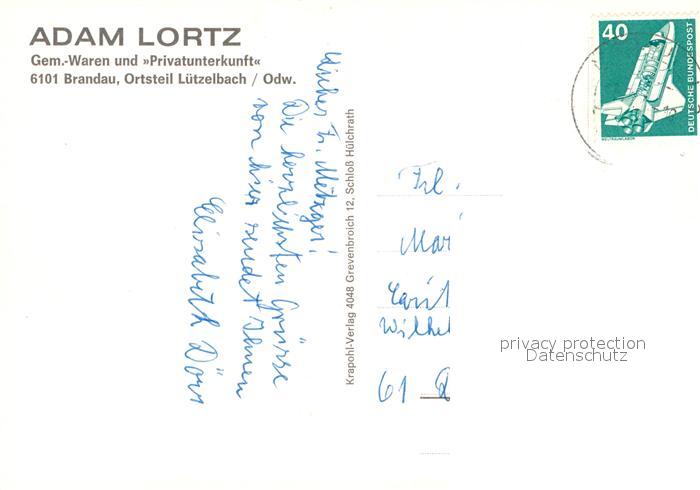 ADAM LORTZ
Gem.-Waren und »Privatunterkunft«
6101 Brandau, Ortsteil Lützelbach / Odw.
Fr. Metzger!
Die herzlichsten Grüsse
von hier sendet Ihnen
Elisabeth Dörr
Krapohl-Verlag 4048 Grevenbroich 12, Schloß Hülchrath
40
DEUTSCHE BUNDESPOST
WELTRAUMLABOR
Frl.
Mari
Wilhel
61
privacy protection
Datenschutz